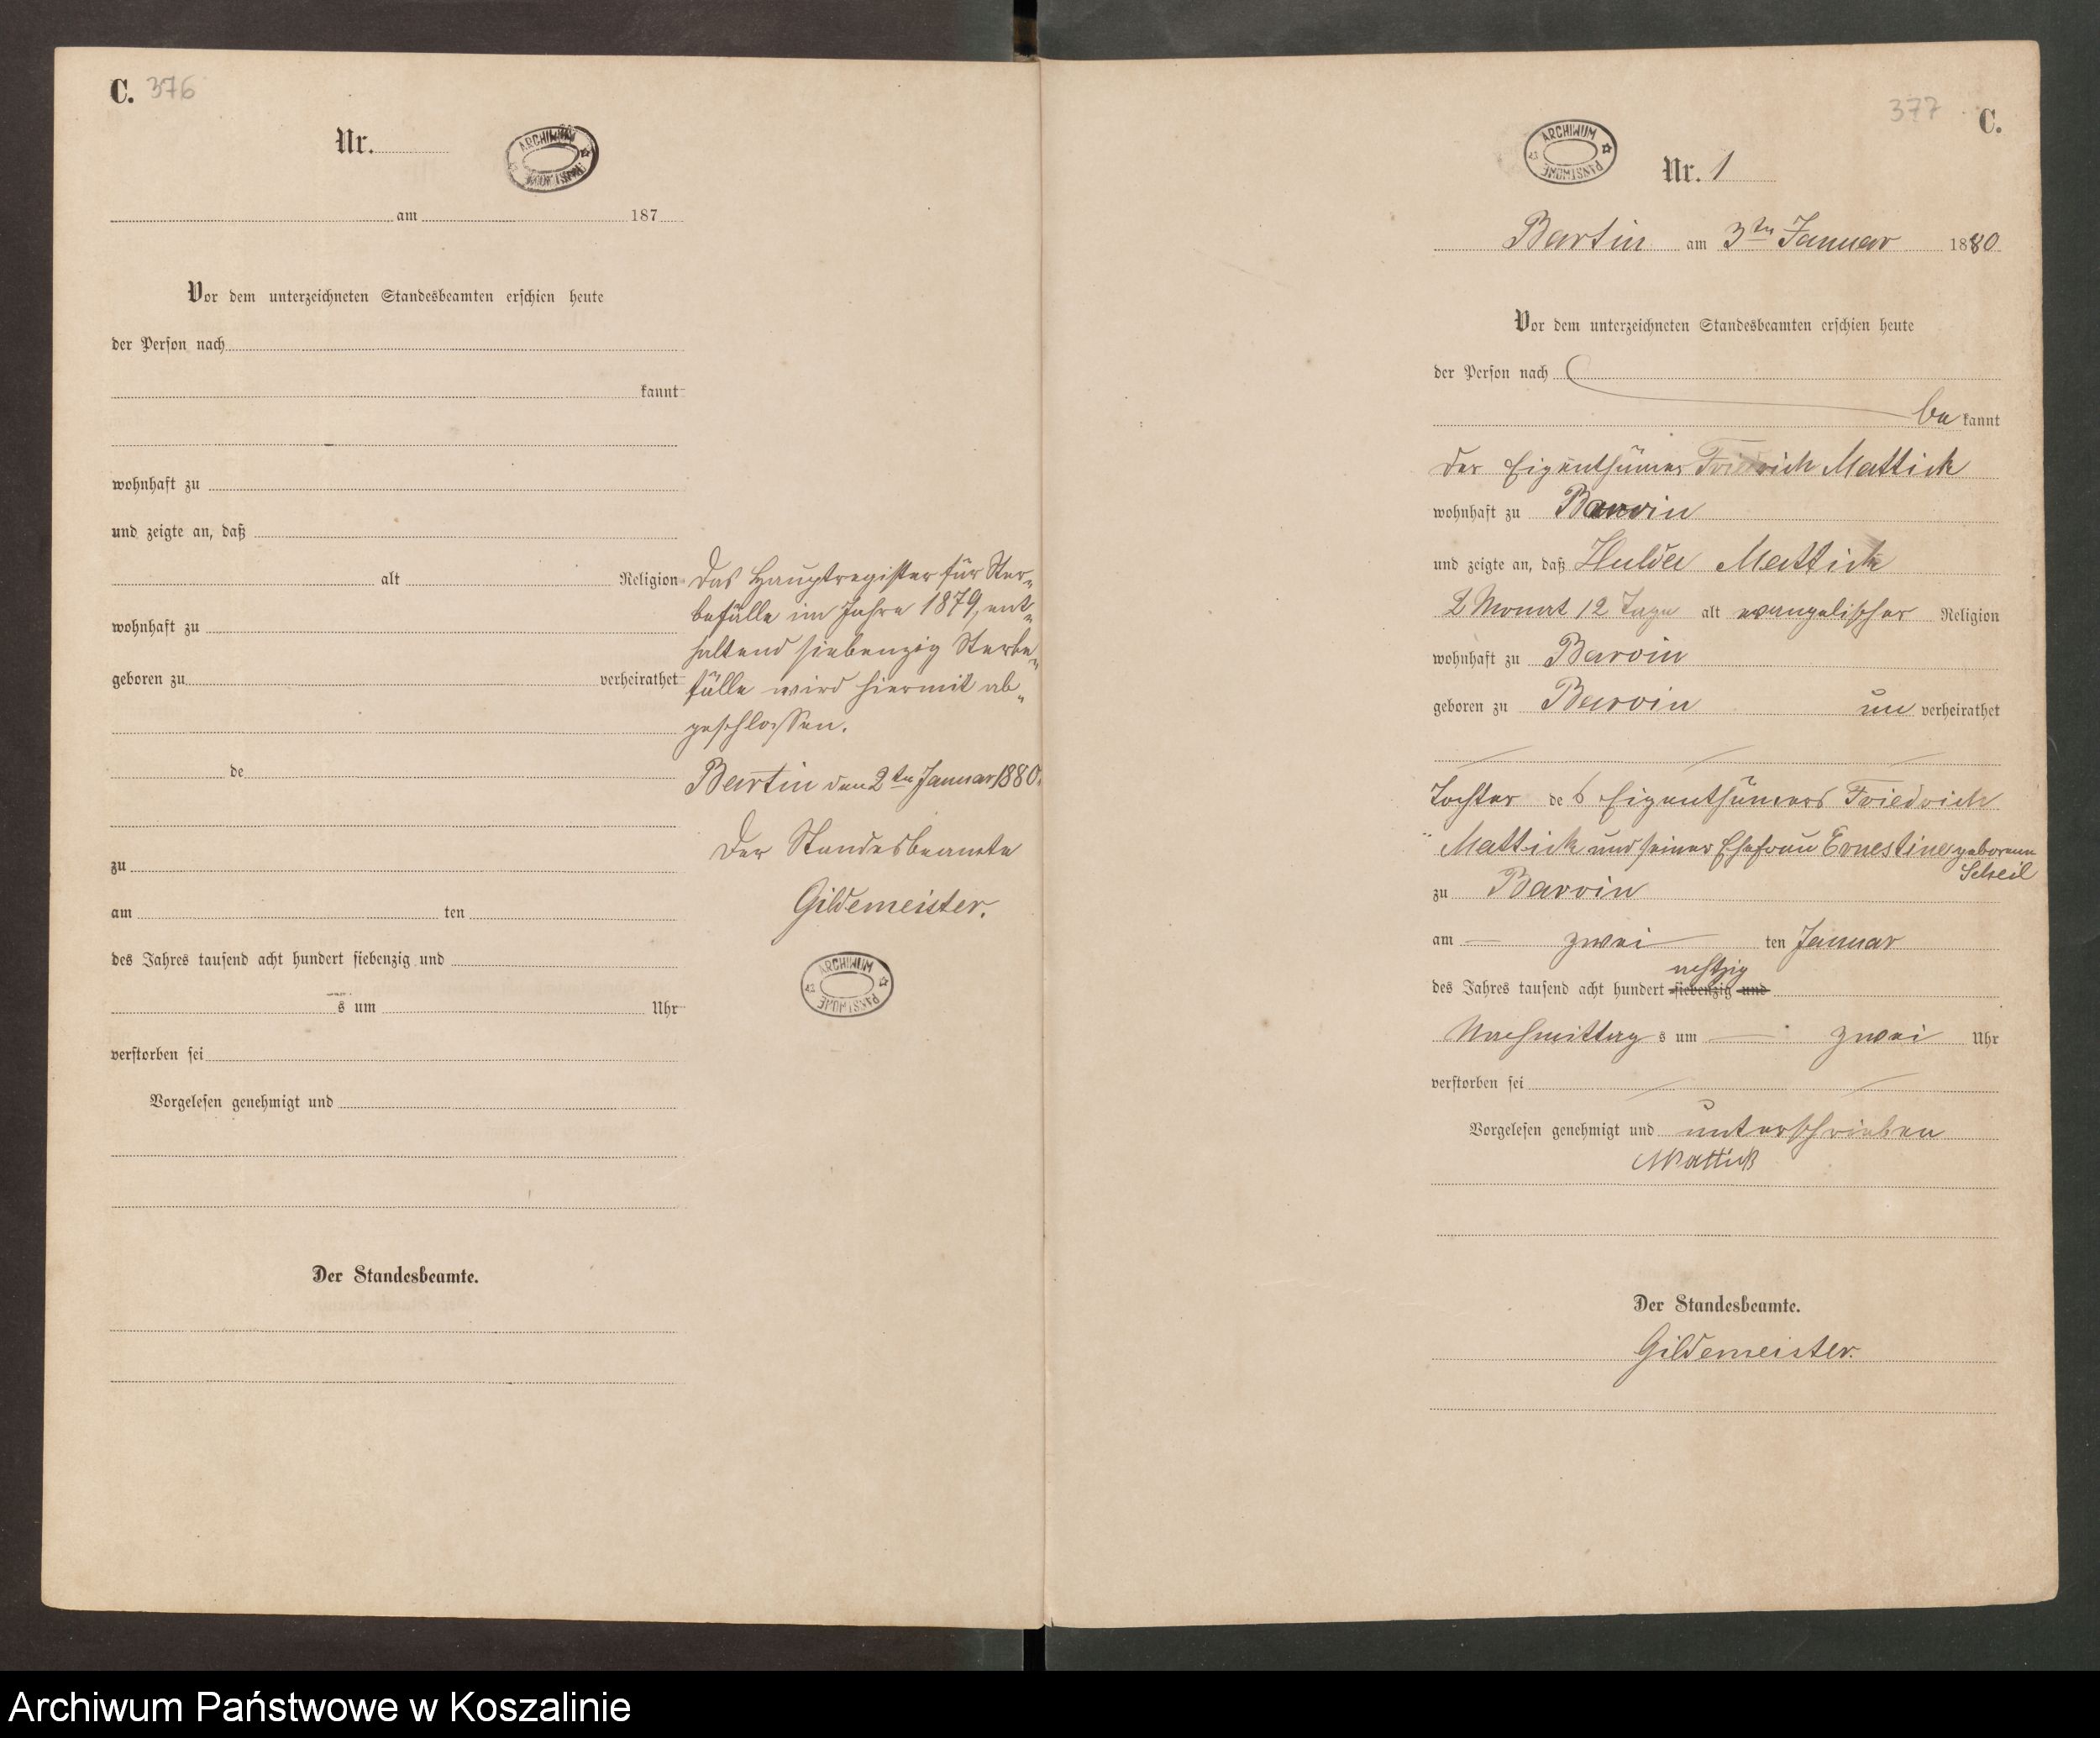 C. 376
Nr.
ARCHIWUM PAŃSTWOWE
am 187
Vor dem unterzeichneten Standesbeamten erschien heute
der Person nach
kannt
wohnhaft zu
und zeigte an, daß
alt Religion
wohnhaft zu
geboren zu verheirathet
de
zu
am ten
des Jahres tausend acht hundert siebenzig und
s um Uhr
verstorben sei
Vorgelesen genehmigt und
Der Standesbeamte.
Das Hauptregister für Ster-
befälle im Jahre 1879, ent-
haltend siebenzig Sterbe-
fälle wird hiermit ab-
geschlossen.
Bartin den 2ten Januar 1880.
Der Standesbeamte
Gildemeister.
ARCHIWUM PAŃSTWOWE
377 C.
ARCHIWUM PAŃSTWOWE
Nr. 1
Bartin am 3ten Januar 1880
Vor dem unterzeichneten Standesbeamten erschien heute
der Person nach
be kannt
der Eigenthümer Friedrich Mattick
wohnhaft zu Barvin
und zeigte an, daß Hulda Mattick
Monat 12 Tage alt evangelischer Religion
wohnhaft zu Barvin
geboren zu Barvin un verheirathet
Tochter des Eigenthümers Friedrich
Mattick und seiner Ehefrau Ernestine geborene
Scheil
zu Barvin
am zwei ten Januar
achtzig
des Jahres tausend acht hundert siebenzig und
Nachmittag s um zwei Uhr
verstorben sei
Vorgelesen genehmigt und unterschrieben
Mattick
Der Standesbeamte.
Gildemeister.
Archiwum Państwowe w Koszalinie